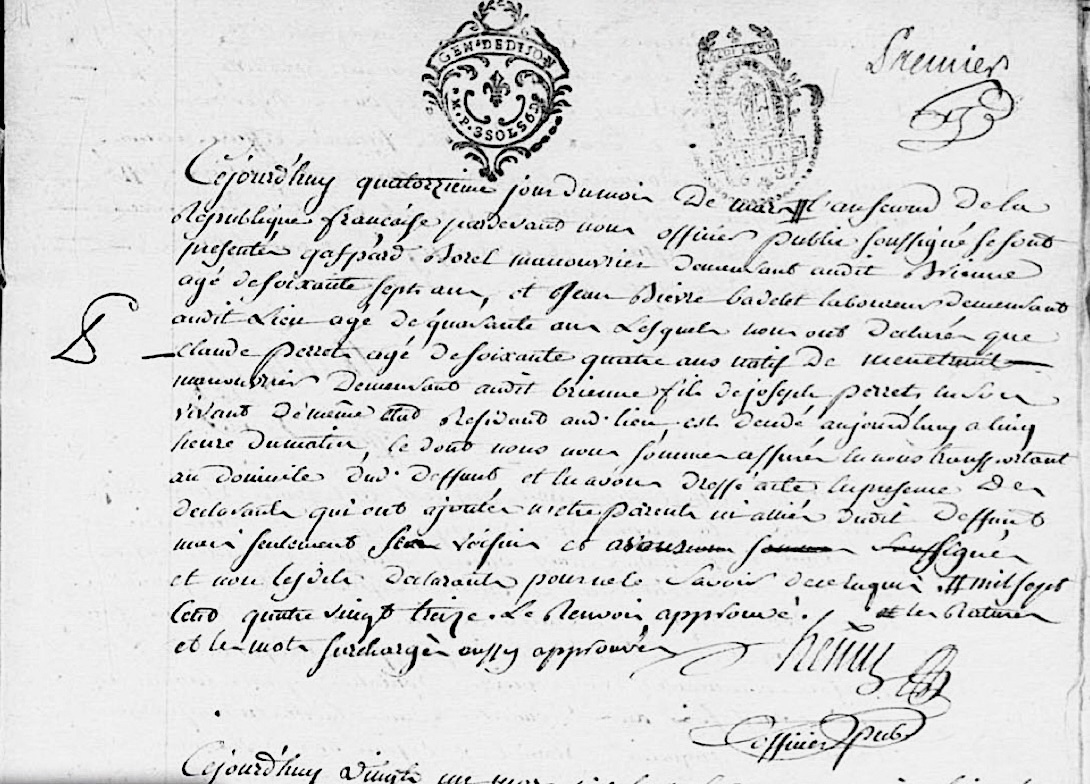 GEN. DE DIJON
M.P. 3 SOLS 6 D
Premier
Cejourd'huy quatorzieme jour du mois De mars # l'an second de la
Republique francaise pardevand nous officier public soussigné se sont
presentés gaspard Borel manouvrier demeurant audit Brienne
agé de soixante sept ans, et Jean Pierre badelet laboureur demeurant
audit Lieu agé de quarante ans Lesquels nous ont declarés que
D
claude perret agé de soixante quatre ans natif de
manouvrier demeurant audit brienne fils de joseph perret en son
vivant de même Residant aud. lieu est decedé aujourd'huy a cinq
heure du matin, ce dont nous nous sommes assurés en nous transportant
au domicile dud. deffunt et en avons dressé acte en presence des
declarants qui ont ajoutés n'etre parents ni alliés dudit deffunt
mais seulement voisins et avons soussignés
et non lesdits declarants pour ne le savoir de ce enquis # mil sept
cent quatre vingt treize. Le Renvoir approuvé. # les Ratures
et les mots surchargés aussy approuvés
henry
officier pub
Cejourd'huy Vingt un mars